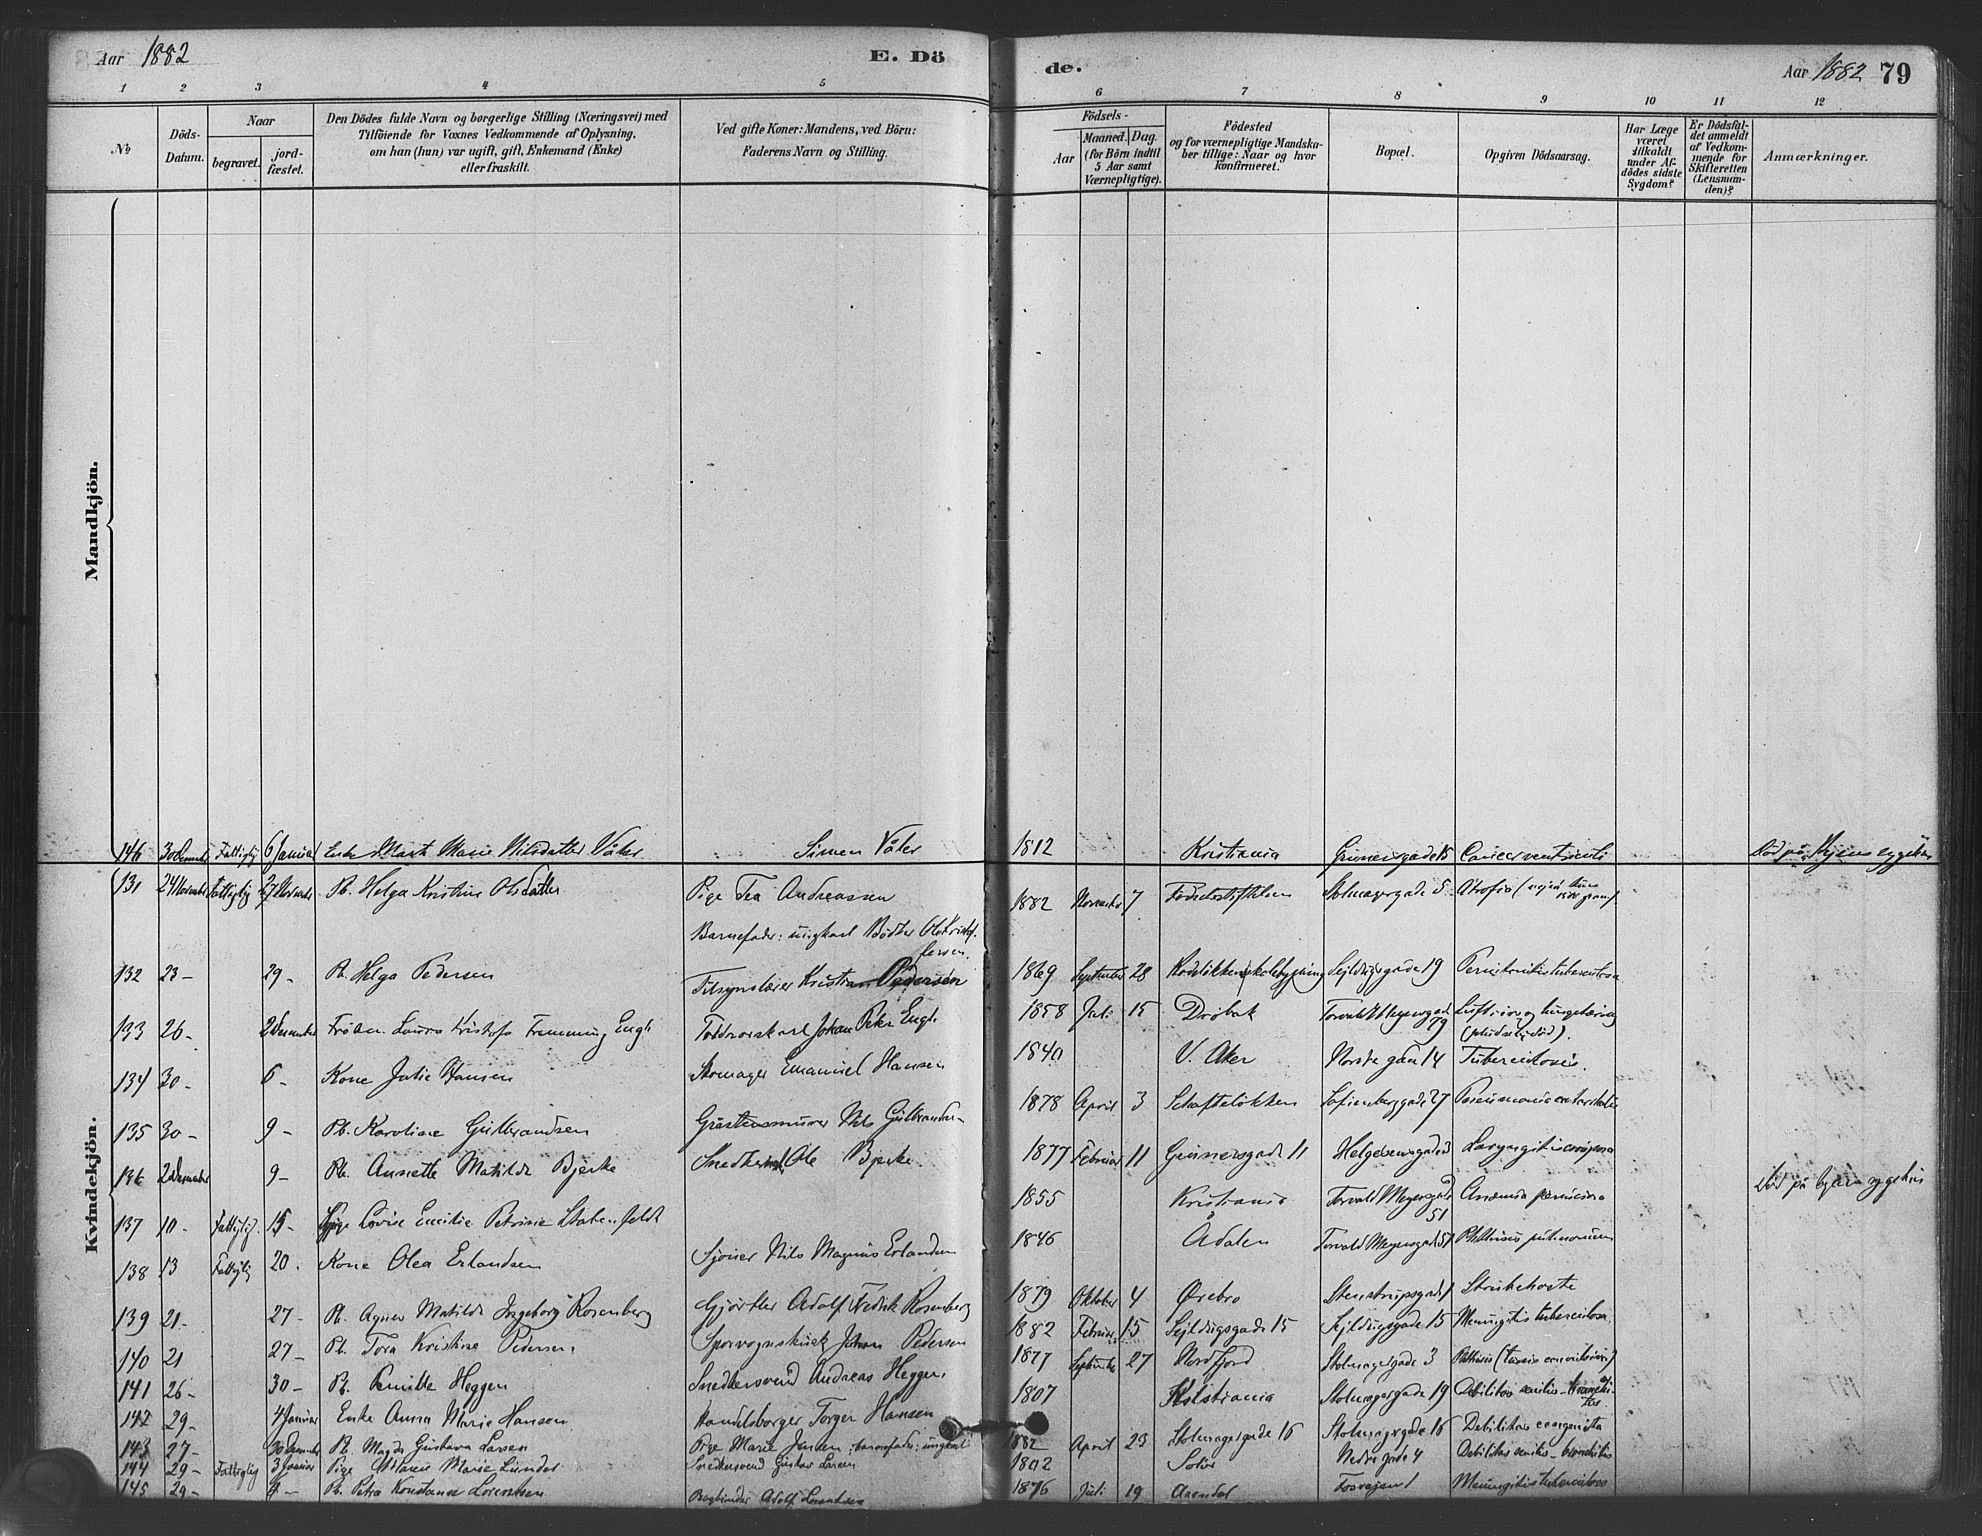 Aar 1882 E. Dö
de. Aar 1882 79
1 2 3 4 5 6 7 8 9 10 11 12
No
Döds-Datum.
Naar
begravet.
jord-fæstet.
Den Dödes fulde Navn og borgerlige Stilling (Næringsvei) med
Tilföiende for Voxnes Vedkommende af Oplysning,
om han (hun) var ugift, gift, Enkemand (Enke)
eller fraskilt.
Ved gifte Koner: Mandens, ved Börn:
Faderens Navn og Stilling.
Födsels-
Aar
Maaned. Dag.
(for Börn indtil
5 Aar samt
Værnepligtige).
Födested
og for værnepligtige Mandska-
ber tillige: Naar og hvor
konfirmeret.
Bopæl.
Opgiven Dödsaarsag.
Har Læge
været
tilkaldt
under Af-
dödes sidste
Sygdom?
Er Dödsfal-
det anmeldt
af Vedkom-
mende for
Skifteretten
(Lensman-
den)?
Anmærkninger.
Mandkjön.
Kvindekjön.
146 Fattiglig 6 Januar Enke Marie Nilsdatter Våler Simen Våler 1812 Kristiania Grünersgade 15 Cancer ventriculi Död på
131 24 November Fattiglig 27 November Pb. Helga Kristine Olsdatter Pige Tea Andreassen 1882 November 7 Födselsstiftelsen Skomagergade 5 Atrofia
Barnefader: ungkarl Bödker Ole Kristof-
fersen.
132 23 – 29 – Pb. Helga Pedersen Kristian Pedersen 1869 September 28 Sejldugsgade 19 Peritonitis tuberculosa
133 26 – 2 December Fröken Laura Kristofa Flemming Engh Johan Peter Engh 1858 Juli 15 Dröbak Torvald Meyersgade 79
134 30 – 6 – Kone Julie Hansen Skomager Emanuel Hansen 1840 V. Aker Nordregade 14 Tuberculosis.
135 30 – 9 – Pb. Karoline Gulbrandsen Nils Gulbrandsen 1878 April 3 Schafteløkken Sofienberggade 27 Pneumonia catarrhalis
136 2 December 9 – Pb. Annette Matilde Bjerke Snedker Ole Bjerke 1877 Februar 11 Grünersgade 11 Helgesensgade 3 Laryngitis crouposa
137 10 – Fattiglig 15 – Pige Lovise Emilie Petrine 1855 Kristiania Torvald Meyersgade 51 Anæmia perniciosa Död på byens sygehus
138 13 Fattiglig 20 – Kone Olea Erlandsen Nils Magnus Erlandsen 1846 Ådalen Torvald Meyersgade 57 Phthisis pulmonum
139 21 – 27 – Pb. Agnes Matilde Ingeborg Rosenberg Gjörtler Adolf Fredrik Rosenberg 1879 Oktober 4 Ørebro Stenstrupsgade 1 Strubehoste
140 21 27 – Pb. Tora Kristine Pedersen Sporvognskusk Johan Pedersen 1882 Februar 15 Sejldugsgade 15 Sejldugsgade 15 Meningitis tuberculosa.
141 26 – 30 – Pb. Pernille Heggen Snedkersvend Andreas Heggen 1877 September 27 Nordfjord Skomagergade 3 Phthisis
142 29 – 4 Januar Enke Anna Marie Hansen Handelsborger Torger Hansen 1807 Kristiania Skomagergade 19 Debilitas senilis –
143 27 – 30 December Pb. Magda Gustava Larsen Pige Marie Jensen, barnefader: ungkarl
Snedkersvend Gustav Larsen 1882 April 23 Skomagergade 16 Skomagergade 16 Debilitas congenita
144 29 – Fattiglig 3 Januar Pige Maren Marie Lunder 1802 Solör Nedregade 4 Debilitas senilis – bronchitis
145 29 – 4 – Pb. Petra Konstanse Lorentsen Bogbinder Adolf Lorentsen 1876 Juli 19 Arendal Fossvejen 1 Meningitis tuberculosa